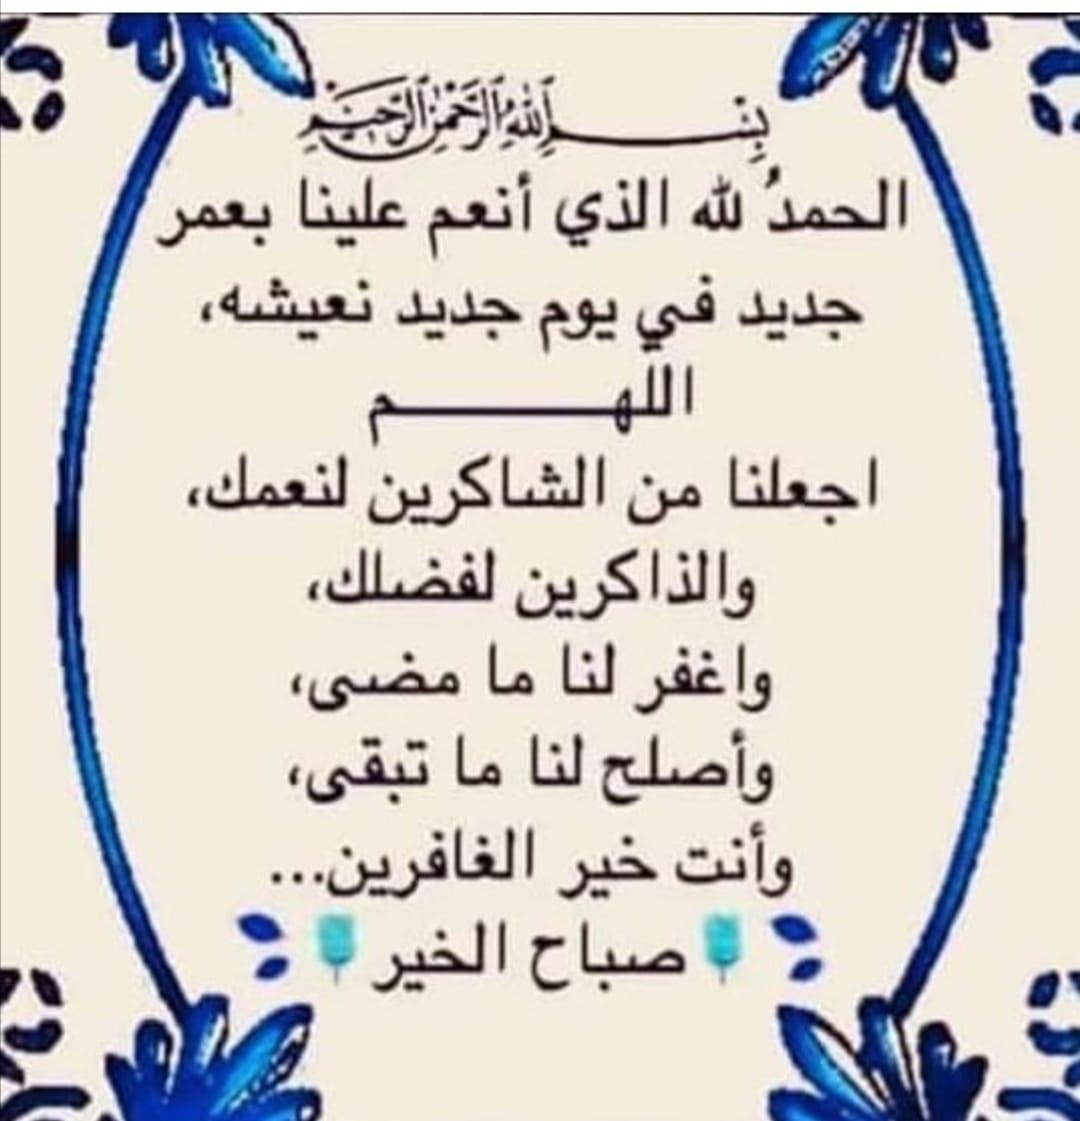 بِسْمِ اللهِ الرَّحْمٰنِ الرَّحِيْمِ
الحمدُ لله الذي أنعم علينا بعمر
جديد في يوم جديد نعيشه،
اللهـــــــــم
اجعلنا من الشاكرين لنعمك،
والذاكرين لفضلك،
واغفر لنا ما مضى،
وأصلح لنا ما تبقى،
وأنت خير الغافرين...
صباح الخير